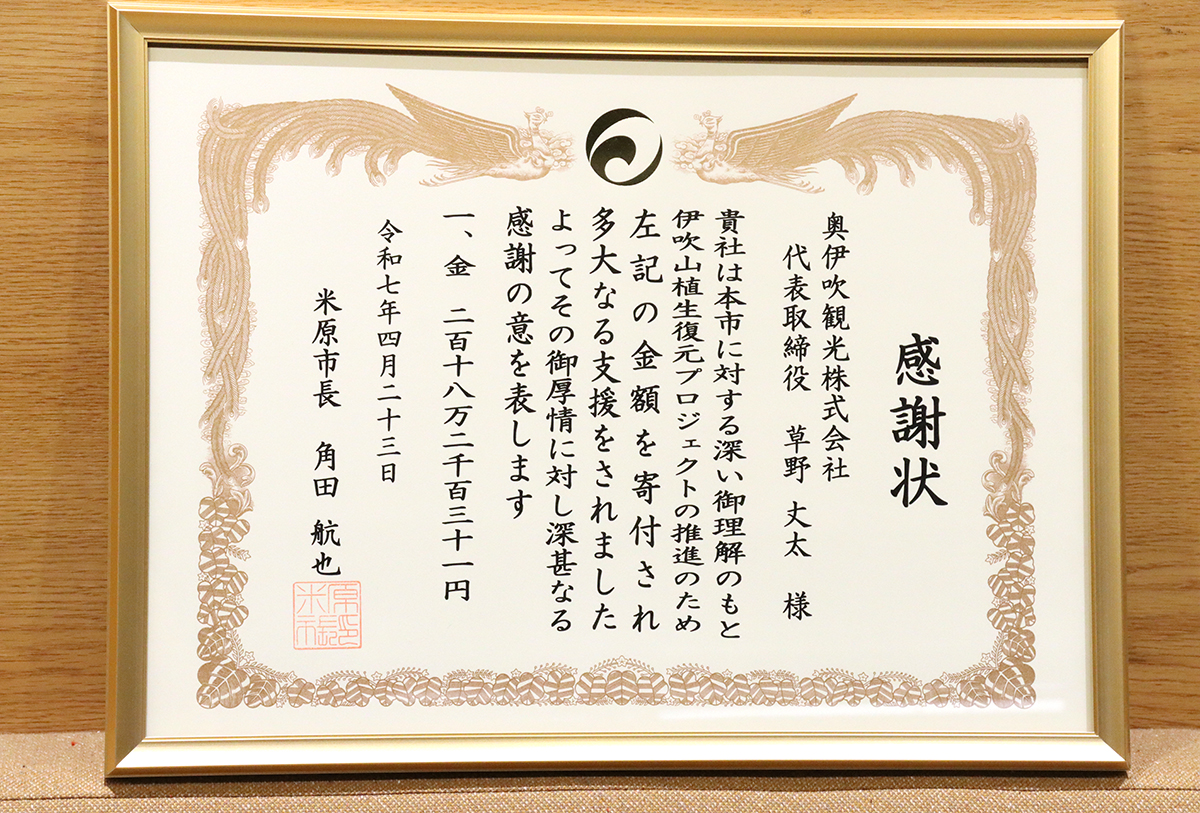 感謝状
奥伊吹観光株式会社
代表取締役 草野 丈太 様
貴社は本市に対する深い御理解のもと
伊吹山植生復元プロジェクトの推進のため
左記の金額を寄付され
多大なる支援をされました
よってその御厚情に対し深甚なる
感謝の意を表します
一、金 二百十八万二千百三十一円
令和七年四月二十三日
米原市長 角田 航也